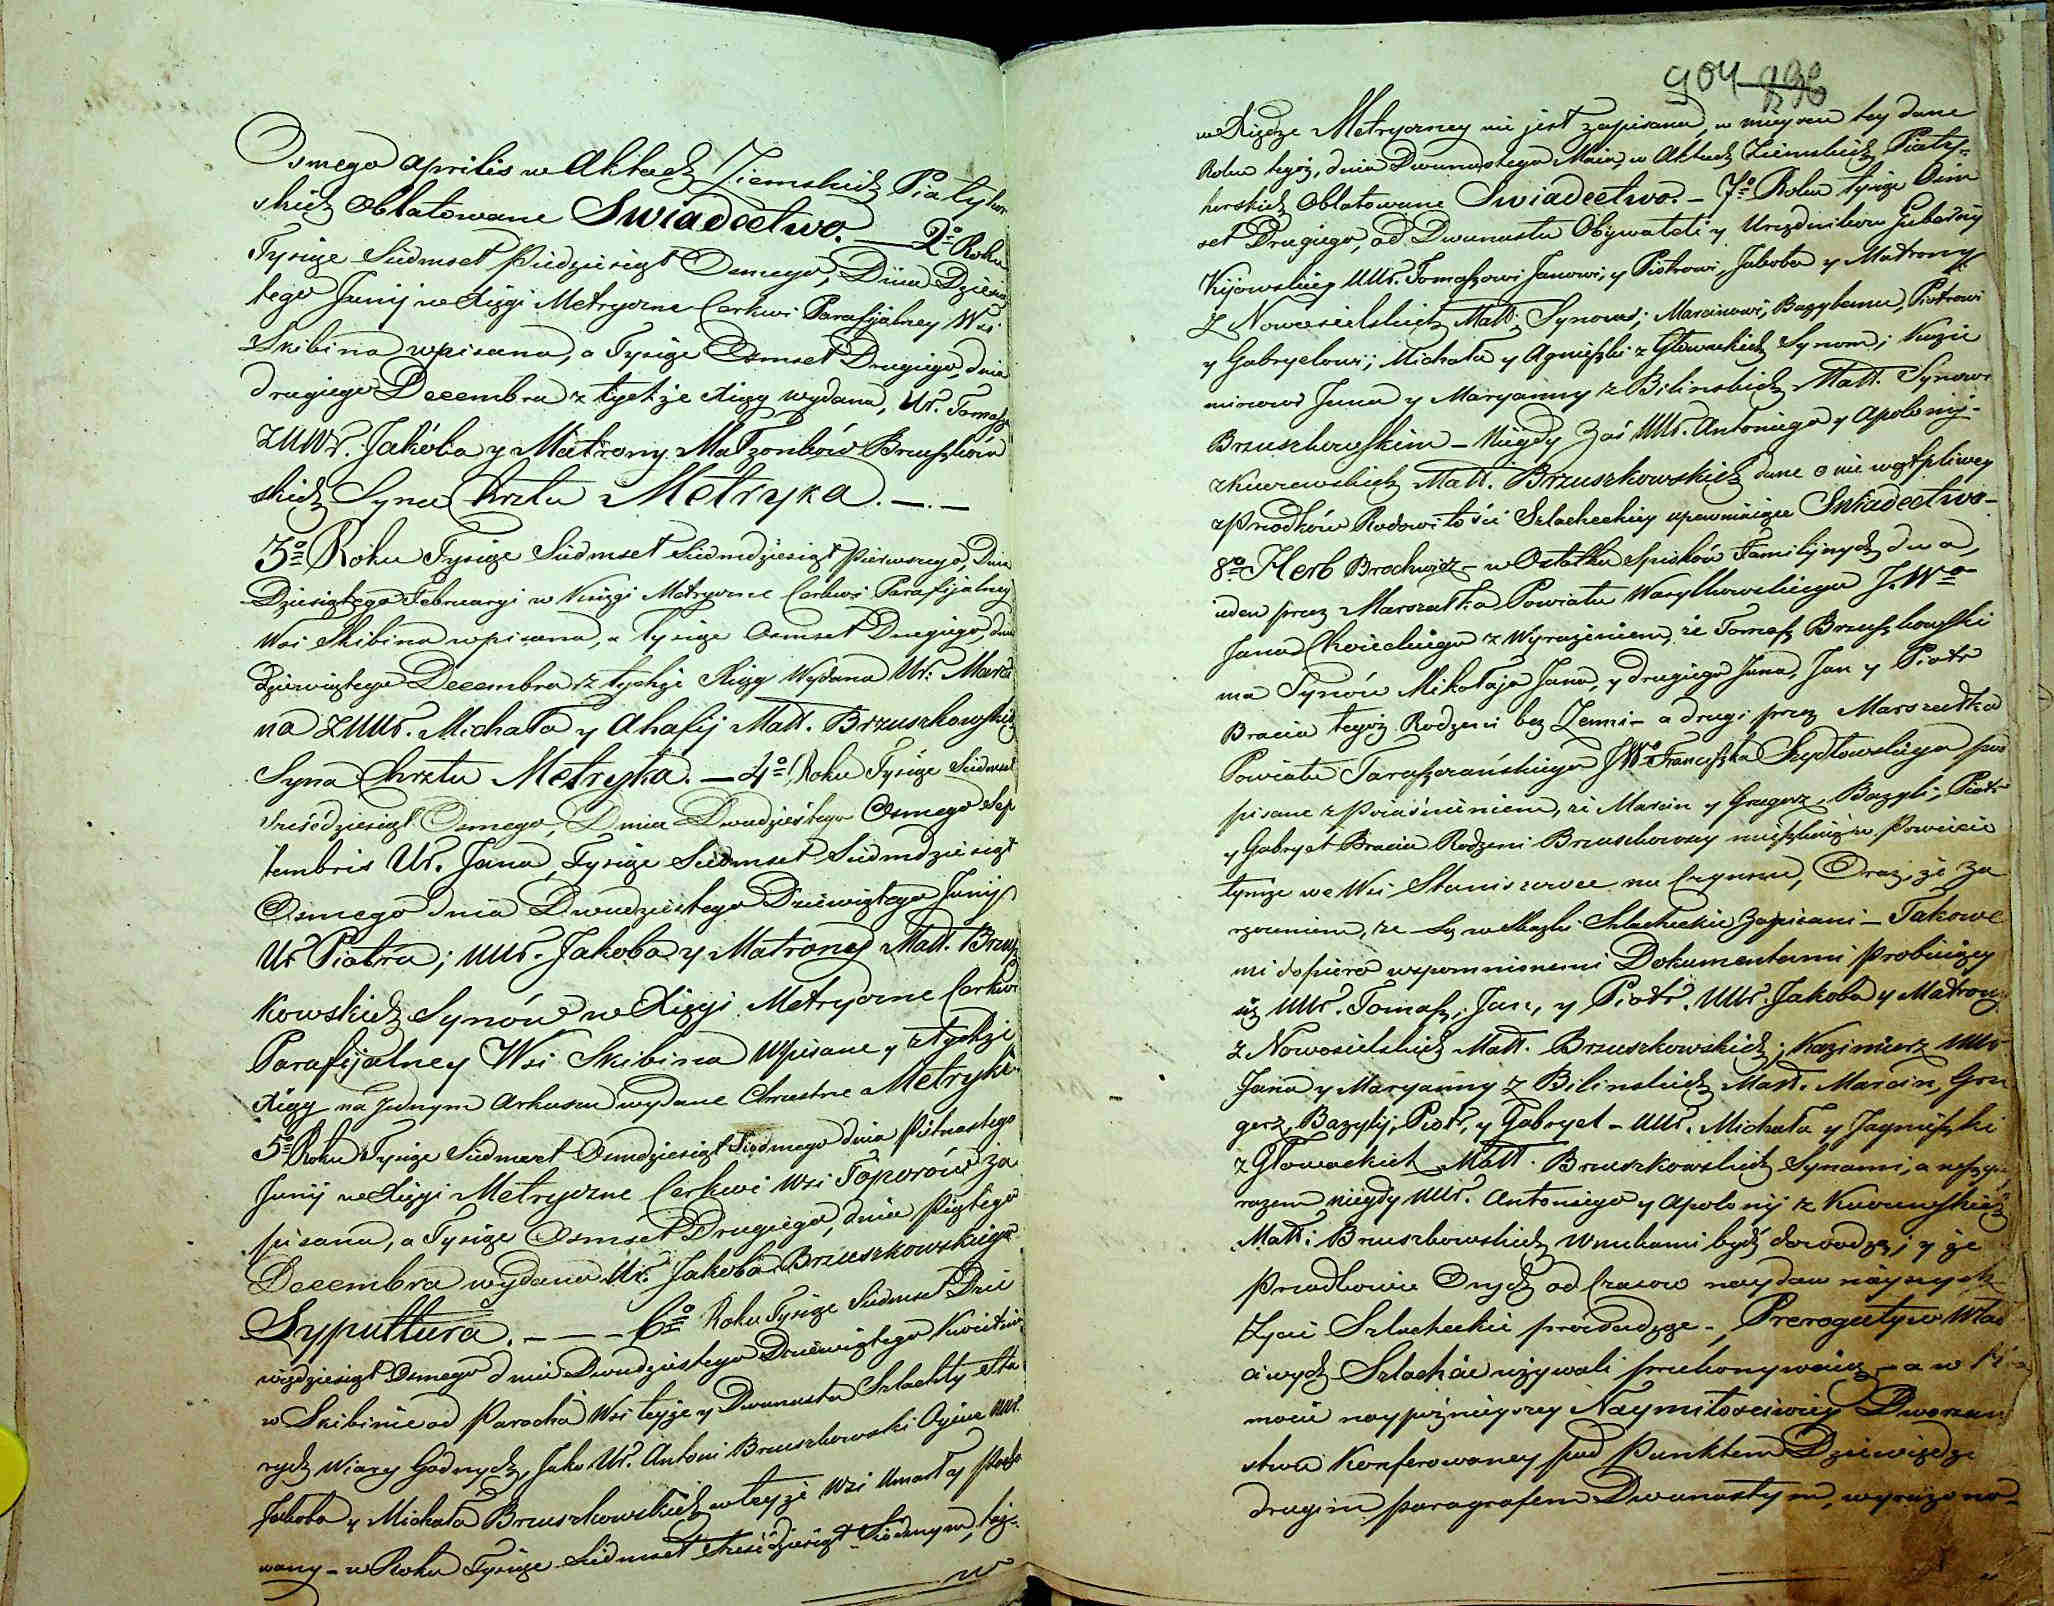 Osmego Aprilis w Aktach Ziemskich Piatyhor
skich Oblatowane Swiadectwo. — 2º Roku
Tysiąc Siedmset Piędziesiąt Osmego, Dnia Dziesią
tego Junij w Xięgi Metryczne Cerkwi Parafijalney Wsi
Skibina wpisana, a Tysiąc Osmset Drugiego, dnia
drugiego Decembra z tychże Xiąg wydana, Ur. Tomasza
z UUr. Jakóba y Matrony Małżonków Bruszkow
skich Syna Chrztu Metryka. —.—
3º Roku Tysiąc Siedmset Siedmdziesiąt Pierwszego, Dnia
Dziesiątego Februaryi w Xięgi Metryczne Cerkwi Parafijalney
Wsi Skibina wpisana, a Tysiąc Osmset Drugiego, dnia
Dziewiątego Decembra z tychże Xiąg Wydana Ur. Marci
na z UUr. Michała y Ahafij Małż. Brzuszkowskich
Syna Chrztu Metryka. — 4º Roku Tysiąc Siedmset
Sześćdziesiąt Osmego, Dnia Dwudziestego Osmego Sep
tembris Ur. Jana, Tysiąc Siedmset Siedmdziesiąt
Osmego dnia Dwudziestego Dziewiątego Junij
Ur. Piotra; UUr. Jakoba y Matrony Małż. Brusz
kowskich Synów w Xięgi Metryczne Cerkwi
Parafijalney Wsi Skibina Wpisane y z tychże
Xiąg na Jednym Arkuszu wydane Chrzestne Metryki
5º Roku Tysiąc Siedmset Osmdziesiąt Siodmego dnia Piętnastego
Junij w Xięgi Metryczne Cerkwi Wsi Toporów za
pisana, a Tysiąc Osmset Drugiego, dnia Piątego
Decembra wydana Ur. Jakoba Brzuszkowskiego
Sypulttura. — — — 6º Roku Tysiąc Siedmset Dzie
więdziesiąt Osmego dnia Dwudziestego Dziewiątego Kwietnia
w Skibinie od Parocha Wsi teyże y Dwunastu Szlachty Sta
rych Wiary Godnych, Jako Ur. Antoni Bruszkowski Oyciec UUr.
Jakoba y Michała Brzuszkowskich w teyże Wsi Umarł y Pocho
wany – w Roku Tysiąc Siedmset Sześćdziesiąt Siódmym, taż
w
904 896
w Xiędze Metryczney nie jest zapisana, w mieysce tey dane
Roku tegoż, dnia Dwunastego Maia, w Aktach Ziemskich Piaty-
horskich Oblatowane Swiadectwo. – 7º Roku Tysiąc Osm
set Drugiego, od Dwunastu Obywateli y Urzędników Gubernij
Kijowskiey UUr. Tomaszowi Janowi, y Piotrowi, Jakoba y Matrony
z Nowosielskich Małż. Synows; Marcinowi, Bazylemu, Piotrowi
y Gabryelowi; Michała y Agnieszki z Głowackich Synom; Kazie
mirowi Jana y Maryanny z Bilinskich Małż. Synowi
Brzuszkowskim – Niegdy Zaś UUr. Antoniego y Apolonij-
z Kurzewskich Małż. Brzuszkowskich dane o nie wątpliwey
z Przodków Rodowitości Szlacheckiey upewniaiące Swiadectwo –
8º Herb Brochwicz – w Ostatku Spisków Familijnych dwa,
ieden przez Marszałka Powiatu Wasylkowskiego J. Wº
Jana Chojeckiego z Wyrażeniem, że Tomasz Brzuszkowski
ma Synów Mikołaja Jana, y drugiego Jana, Jan y Piotr
Bracia tegoż Rodzeni bez Zenni – a drugi przez Marszałka
Powiatu Taraszczańskiego J Wº Franciszka Szydłowskiego pod
pisane z Poiaśnieniem, że Marcin y Grzegorz, Bazyli, Piotr
y Gabryel Bracia Rodzeni Bruszkowscy mieszkaią w Powiecie
tymże we Wsi Staniszowce na Czynszu, Oraz, że za
rzonieniem, że Są w Skazki Szlacheckie Zapisani – Takowe
mi dopiero wspomnionemi Dokumentami Probuiący
iż UUr. Tomasz, Jan, y Piotr, UUr. Jakoba y Matrony
z Nowosielskich Małż. Brzuszkowskich; Kazimierz UUr.
Jana y Maryanny z Bilinskich Małż. Marcin, Grze
gorz, Bazylij, Piotr, y Gabryel – UUr. Michała y Jagnieszki
z Głowackich Małż. Bruszkowskich Synami, a wszyscy
razem niegdy UUr. Antoniego y Apolonij z Kurzewskich
Małż. Bruszkowskich Wnukami bydź dowodzą; y że
Przodkowie Onych od Czasow naydawnieyszych
Życie Szlacheckie prowadząc –, Prerogatyw Właś
ciwych Szlachcie używali przekonywaią – a w
mocie naypóźnieyszey Naymiłościwiey Dworzań
stwu Konferowaney pod Punktem Dziewiędzie
drugim paragrafem Dwunastym, wyrażono–